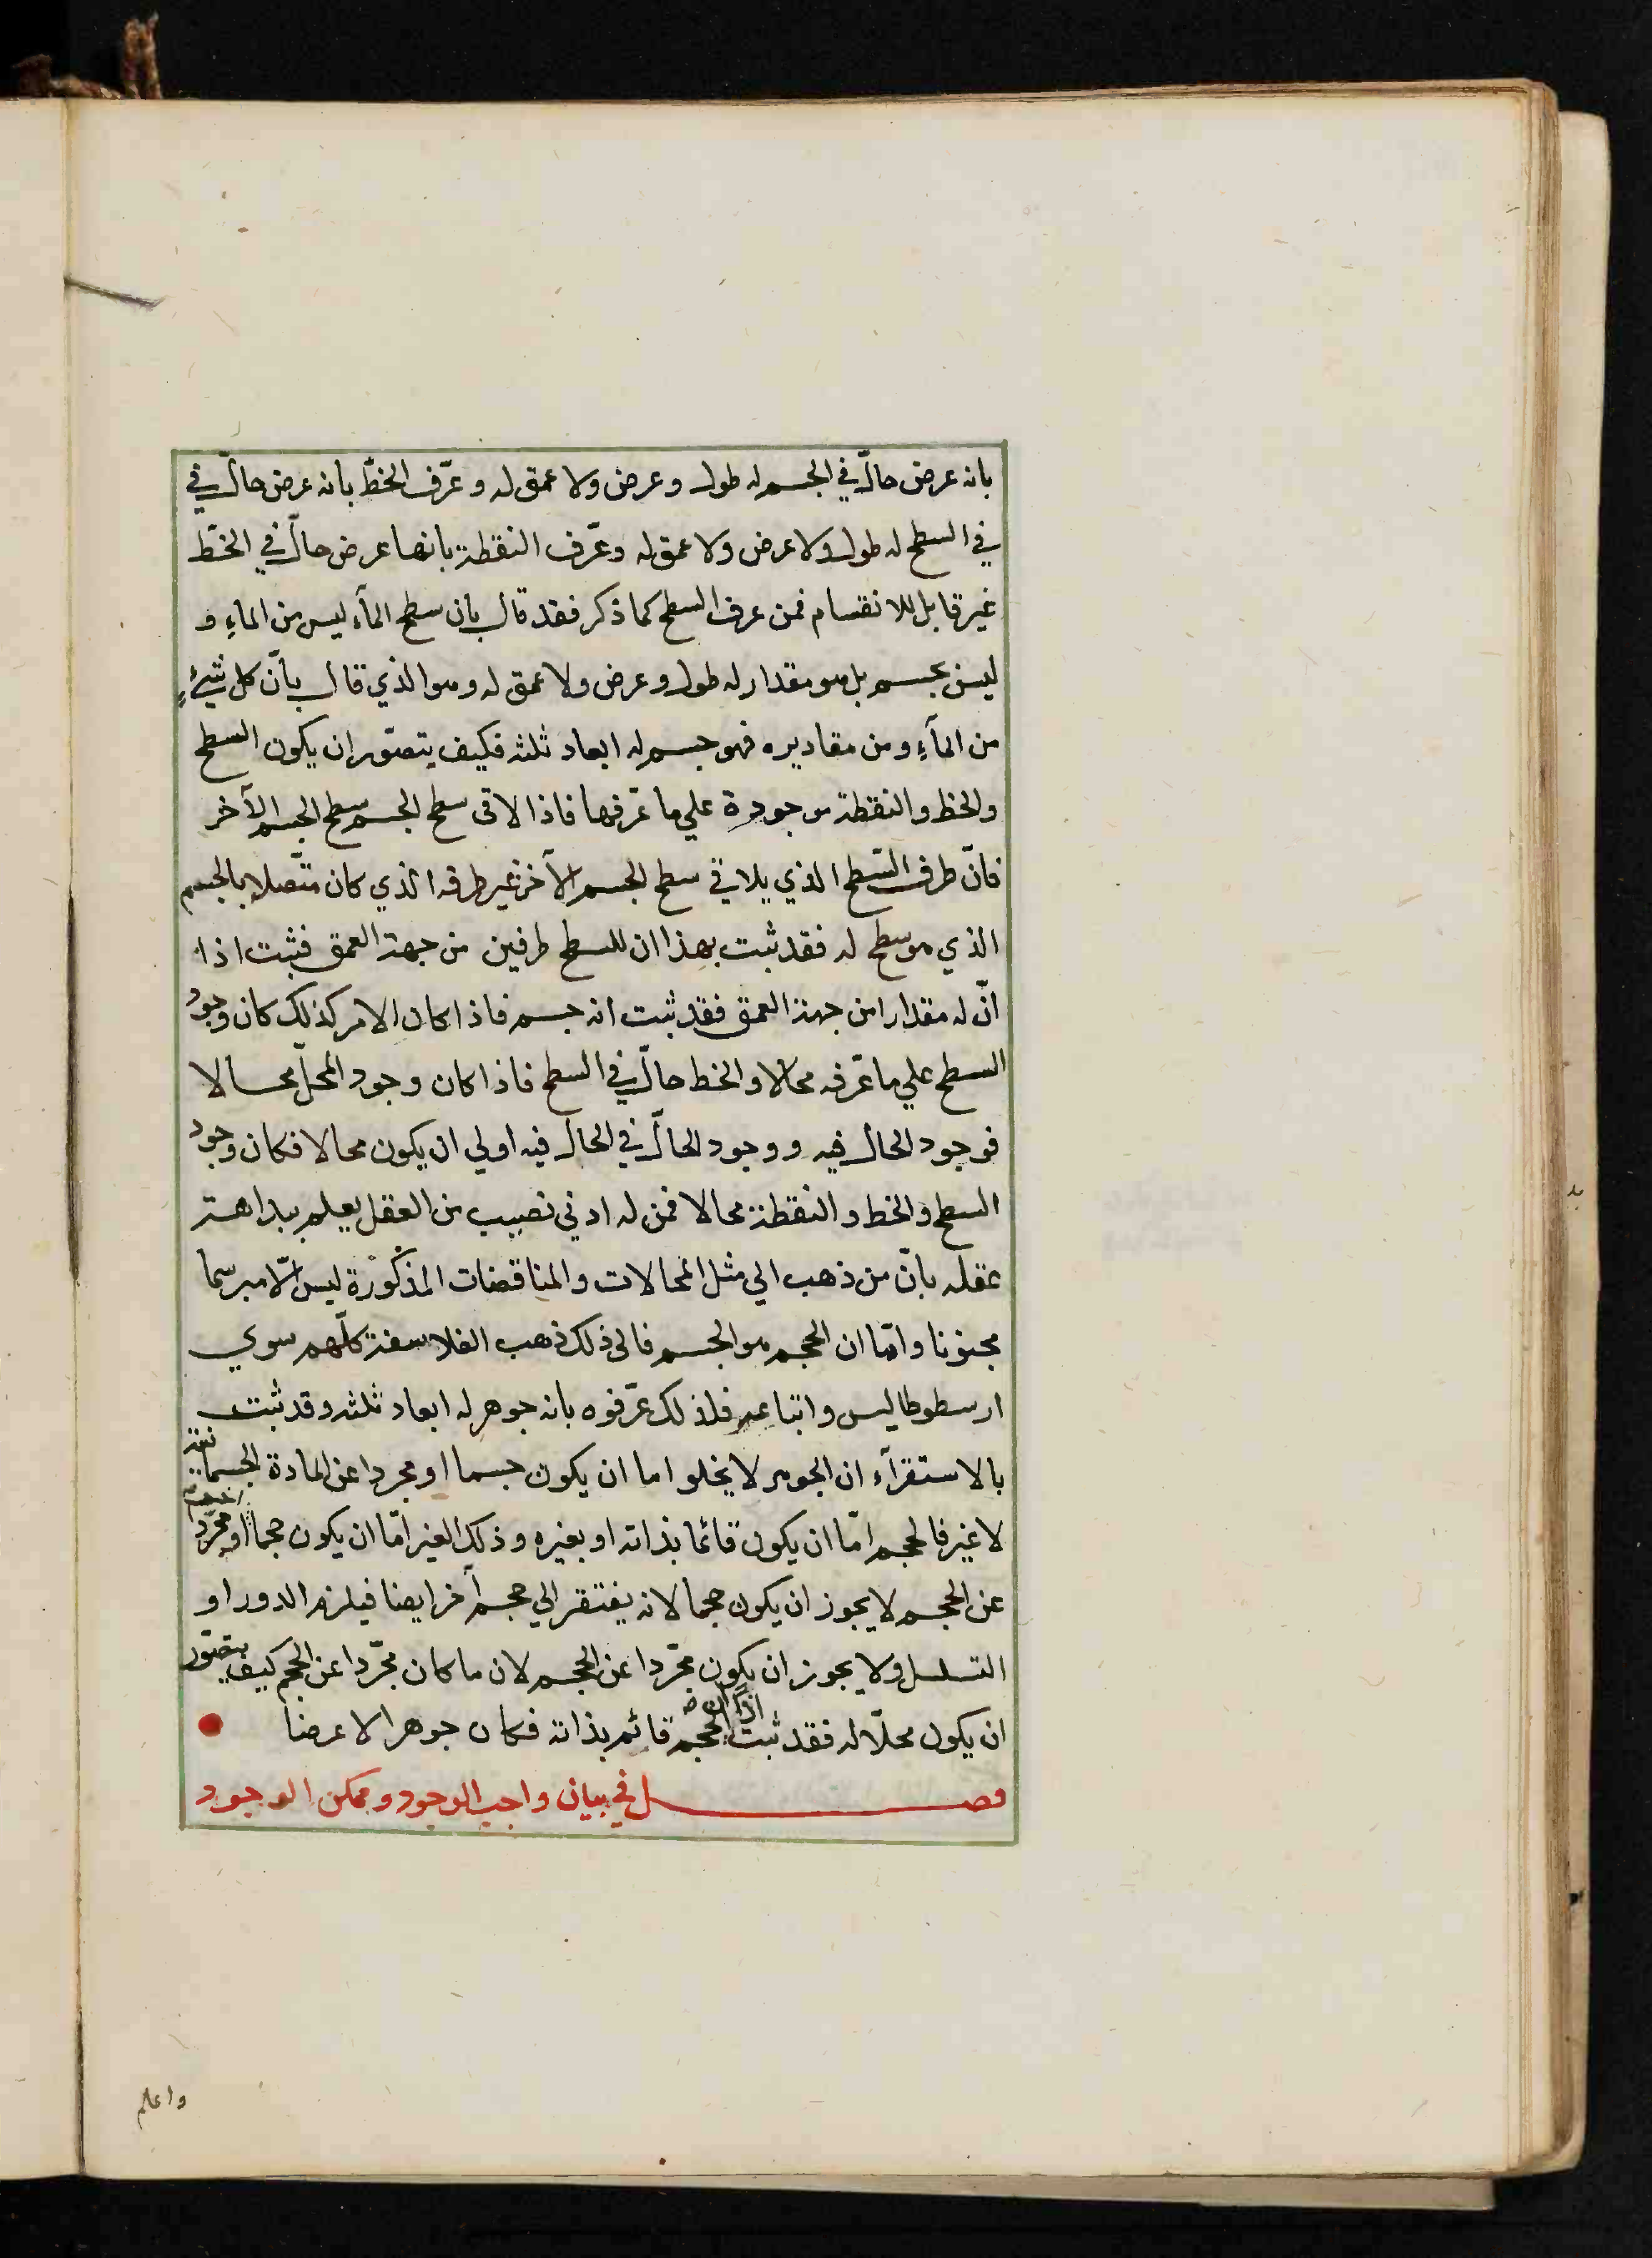 بانه عرض حالّ في الجسم له طول وعرض ولا عمق له وعرّف الخطّ بانه عرض حالّ في
في السطح له طول ولا عرض ولا عمق له وعرّف النقطة بانها عرض حالّ في الخطّ
غير قابل للانقسام فمن عرف السطح كما ذكر فقد قال بان سطح المآء ليس من الماءِ و
ليس بجسم بل هو مقدار له طول وعرض ولا عمق له وهو الذي قال بأنّ كل شيءٍ
من المآءِ ومن مقاديره فهو جسم له ابعاد ثلثه فكيف يتصوّر ان يكون السطح
والخط والنقطة موجودة علي ما عرّفها فاذا لاقى سطح الجسم سطح الجسم الآخر
فانّ طرف السّطح الذي يلاقي سطح الجسم الآخر غير طرفه الذي كان متّصلا بالجسم
الذي هو سطح له فقد ثبت بهذا ان للسطح طرفين من جهة العمق فثبت اذا
انّ له مقدارا من جهة العمق فقد ثبت انه جسم فاذا كان الامر كذلك كان وجود
السطح علي ما عرّفه محالا والخط حالّ في السطح فاذا كان وجود المحلّ محالا
فوجود الحال فيه ووجود الحالّ في الحال فيه اولي ان يكون محالا فكان وجود
السطح والخط والنقطة محالا فمن له ادني نصيب من العقل يعلم ببداهة
عقله بانّ من ذهب الي مثل المحالات والمناقضات المذكورة ليس الّا مبرسما
مجنونا وامّا ان الحجم هو الجسم فالى ذلك ذهب الفلاسفة كلّهم سوي
ارسطوطاليس واتباعه فلذلك عرّفوه بانه جوهر له ابعاد ثلثه وقد ثبت
بالاستقرآء ان الجوهر لا يخلو اما ان يكون جسما او مجردا عن المادة الجسمانية
لا غير فالحجم امّا ان يكون قائما بذاته او بغيره وذلك الغير امّا ان يكون حجما او مجرّدا
عن الحجم لا يجوز ان يكون حجما لانه يفتقر الي حجم آخر ايضا فيلزم الدور او
التسلسل ولا يجوز ان يكون مجرّدا عن الحجم لان ما كان مجرّدا عن الحجم كيف يتصوّر
ان يكون محلّا له فقد ثبت اذا ان الحجم قائم بذاته فكان جوهرا لا عرضا
فصل في بيان واجب الوجود وممكن الوجود
واعلم